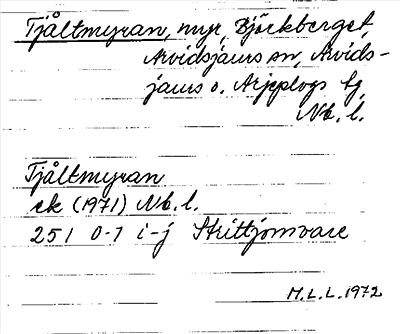 Tjåltmyran, myr, Björkberget,
Arvidsjaurs sn, Arvids-
jaurs o. Arjeplogs tg,
Nb. l.
Tjåltmyran
ek (1971) Nb. l.
25 I 0-1 i-j Strittjomvare
M. L. L. 1972